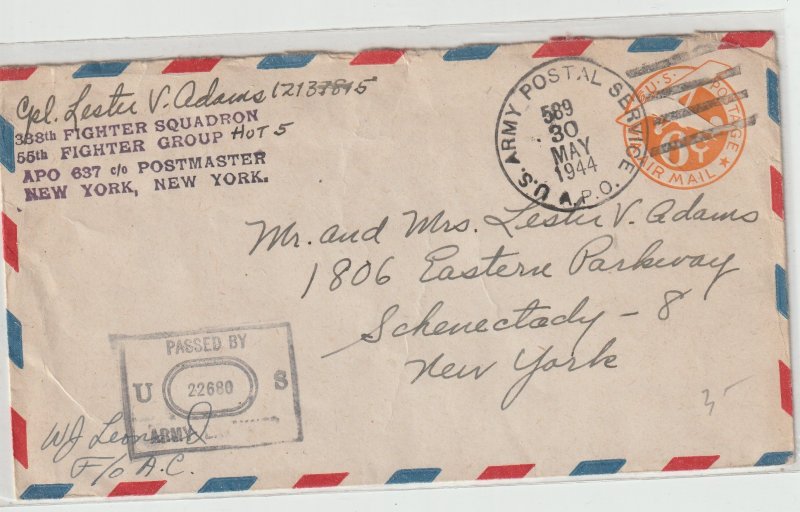 Cpl. Lester V. Adams 12137845
338th FIGHTER SQUADRON
55th FIGHTER GROUP HUT 5
APO 637 c/o POSTMASTER
NEW YORK, NEW YORK.
U.S. ARMY POSTAL SERVICE
A.P.O.
589
30
MAY
1944
U.S. POSTAGE
6¢
AIR MAIL
Mr. and Mrs. Lester V. Adams
1806 Eastern Parkway
Schenectady - 8
New York
PASSED BY
U 22680 S
ARMY
W J Leonard
F/O A.C.
35